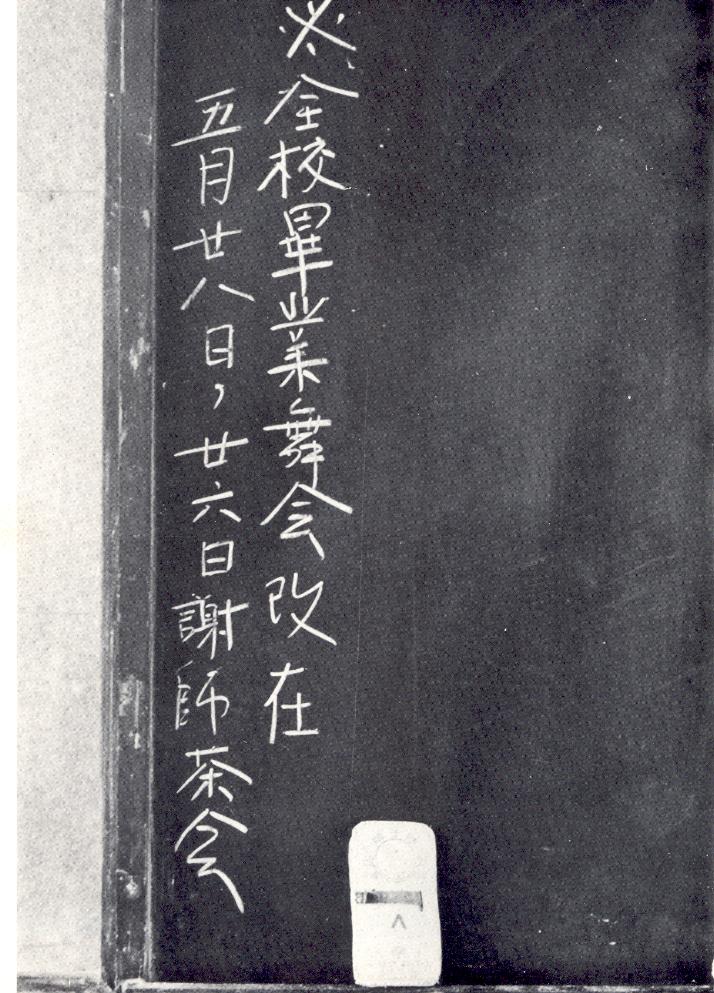 ※全校畢業舞会改在
五月廿八日，廿六日謝師茶会